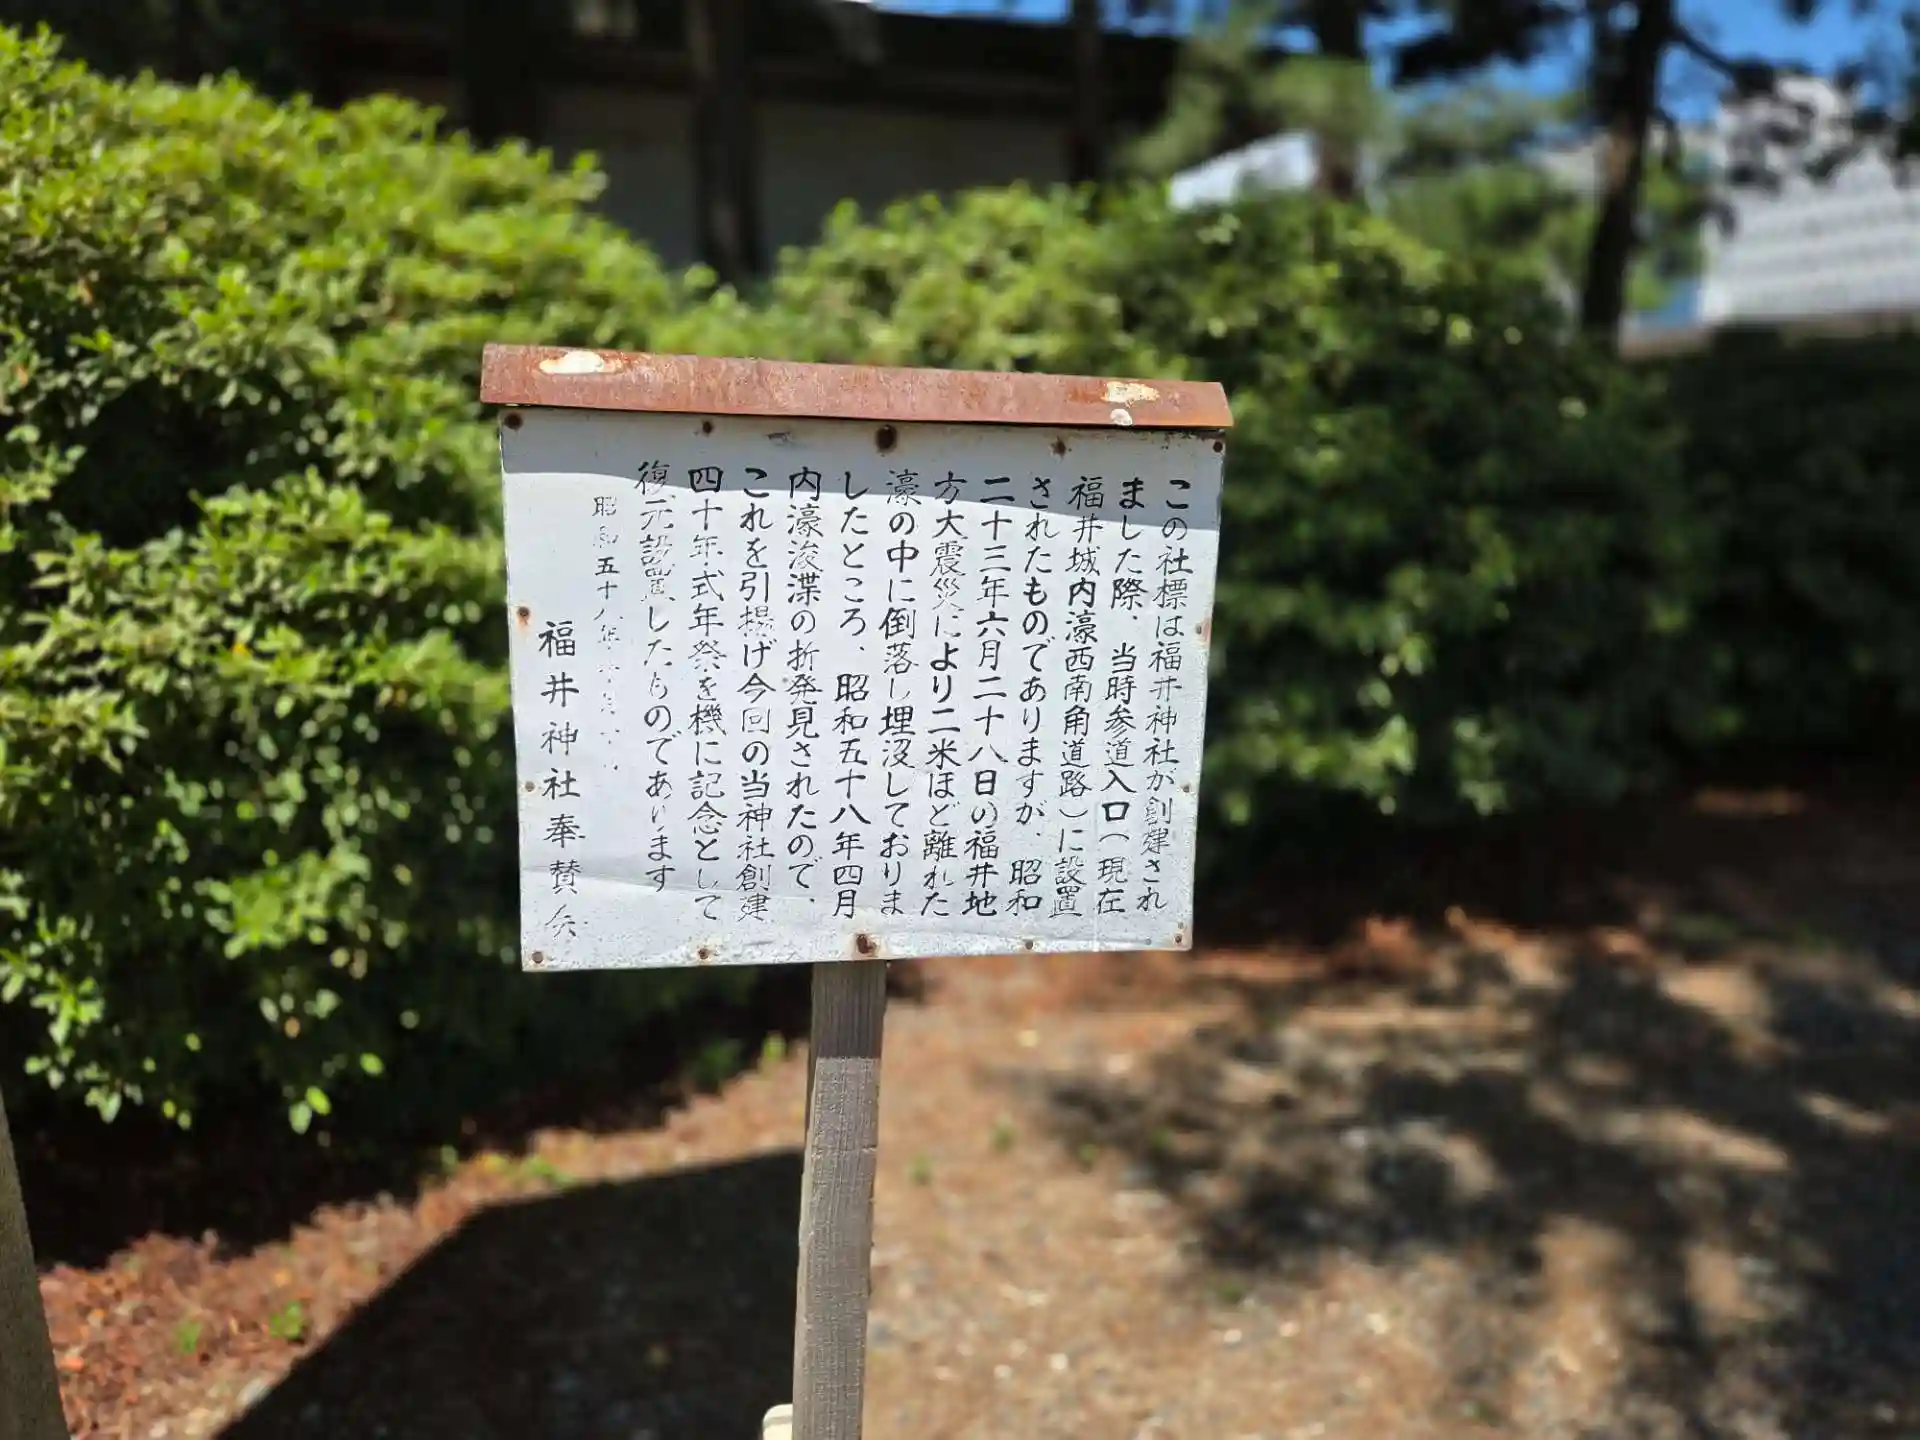 この社標は福井神社が創建され
ました際、当時参道入口(現在
福井城内濠西南角道路)に設置
されたものでありますが、昭和
二十三年六月二十八日の福井地
方大震災により二米ほど離れた
濠の中に倒落し埋没しておりま
したところ、昭和五十八年四月
内濠浚渫の折発見されたので、
これを引揚げ今回の当神社創建
四十年式年祭を機に記念として
復元設置したものであります
昭和五十八年 月
福井神社奉賛